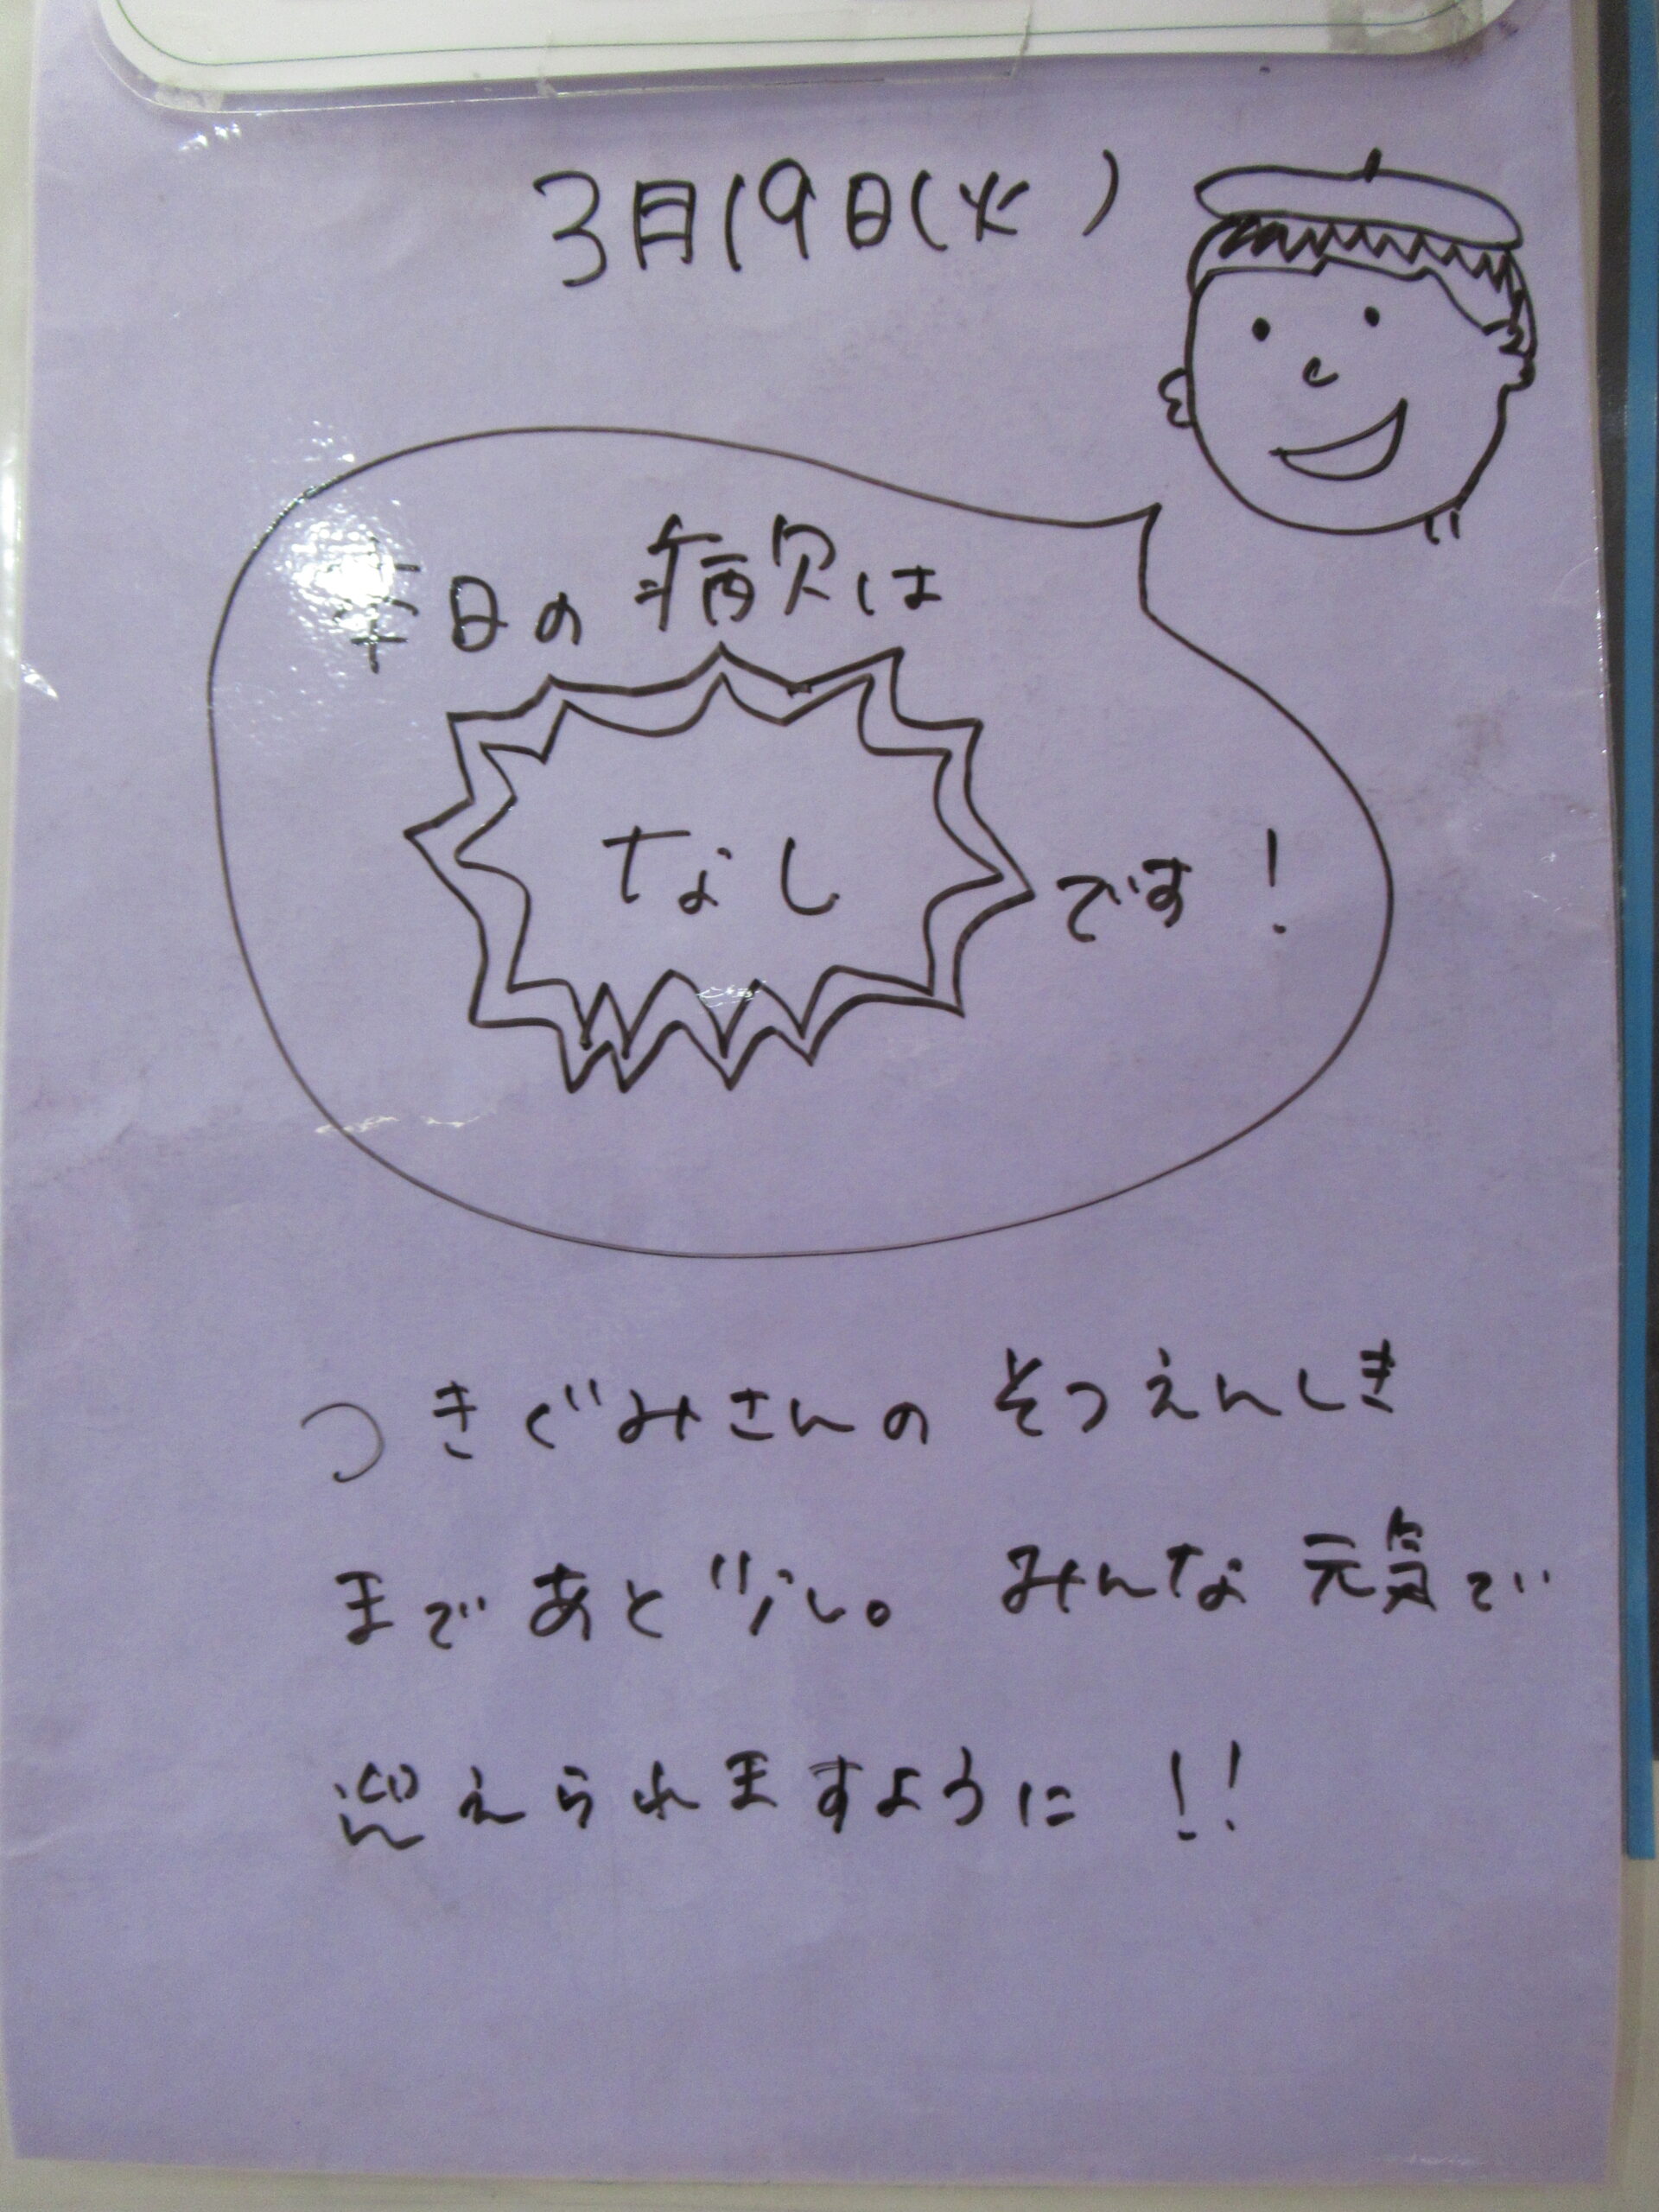 3月19日(火)
本日の病欠は
なし
です!
つきぐみさんの そつえんしき
まであと少し。 みんな元気で
迎えられますように!!